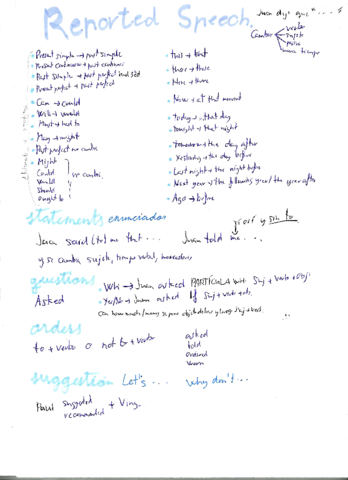 Reported Speech.
Juan dijo que "...
Cambio
verbo
sujeto
Present simple → past simple
Present continuous → past continuous
Past simple → past perfect
Present perfect → past perfect
Can → could
Will → would
Must → had to
May → might
Past perfect no cambia
Might
Could
Would
Should
Ought to
no cambia
this → that
these → those
Here → there
Now → at that moment
Today → that day
Tonight → that night
Tomorrow → the day after
Yesterday → the day before
Last night → the night before
Next year → the following year / the year after
Ago → before
statements enunciados
Juan said (to) me that ...
Juan told me ...
y se cambia sujeto, tiempo verbal, marcadores
questions
Asked
Wh → Juan asked PARTICULA Wh Suj + verbo + obj
Yes/No → Juan asked if suj + verbo +
orders
to + verbo o not to + verbo
asked
told
ordered
warn
suggestion Let's ... why don't ...
Paul suggested + Ving
recommended